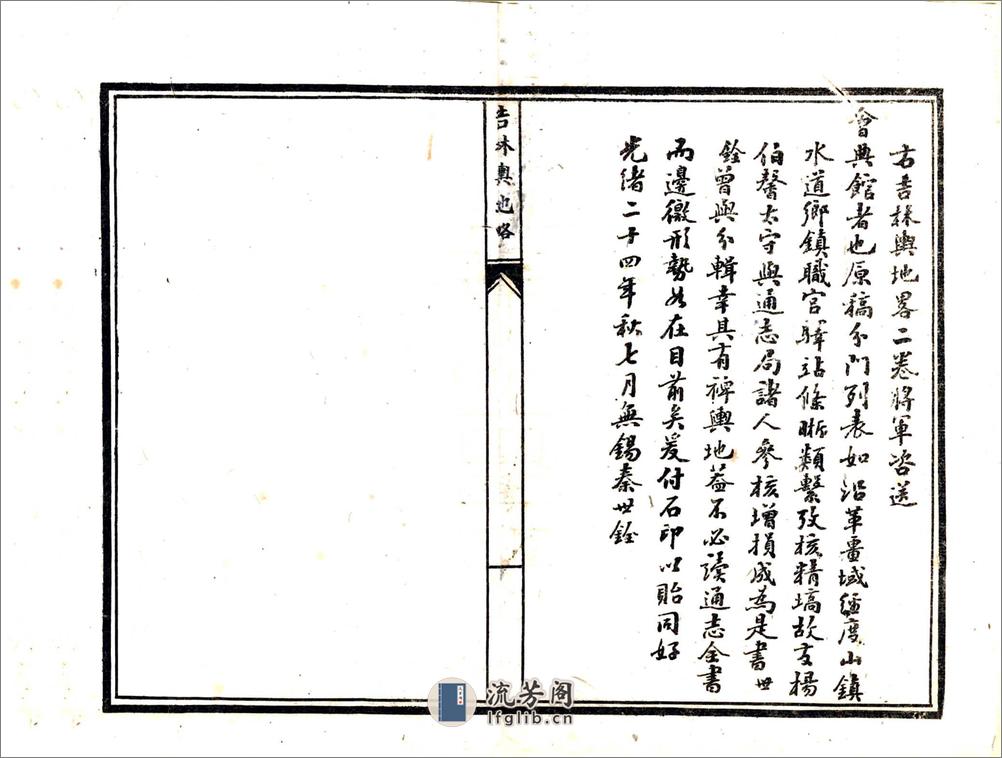 右吉林輿地畧二卷將軍咨送
會典館者也原稿分門列表如沿革畺域經度山鎮
水道鄉鎮職官驛站條晰類繫攷核精塙故友楊
伯馨太守與通志局諸人參核增損成為是書世
銓曾與分輯幸具有裨輿地葢不必讀通志全書
而邊徼形勢如在目前矣爰付石印以貽同好
光緒二十四年秋七月無錫秦世銓
吉林輿地略
流芳阁
lfglib.cn